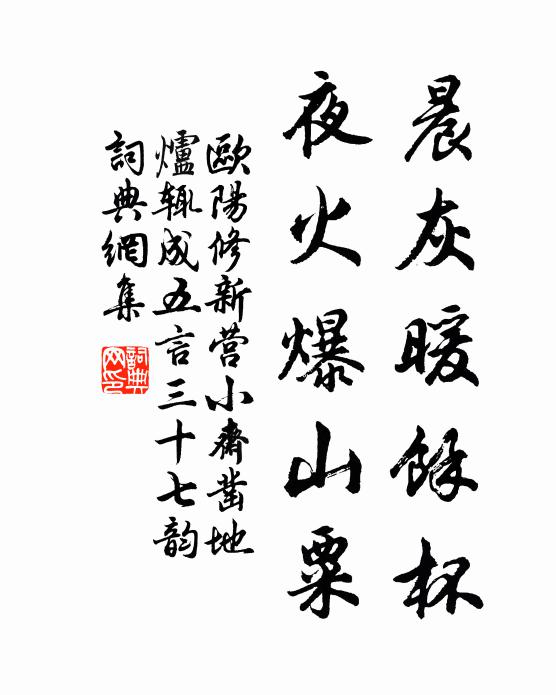 晨灰暖餘杯
夜火爆山粟
歐陽修新營小齋凿地
爐輒成五言三十七韵
詞典網集
詞典
网印